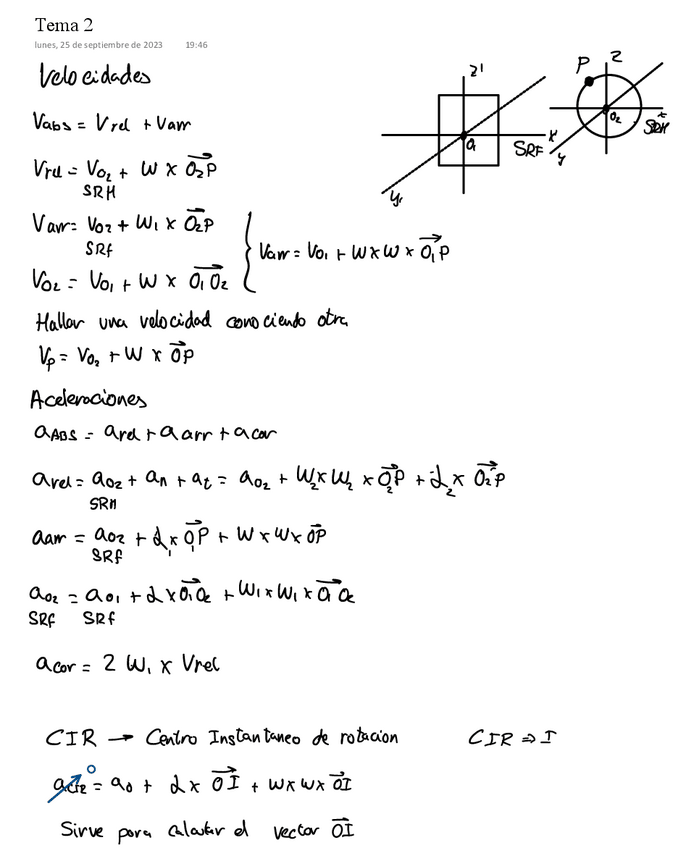 Tema 2
lunes, 25 de septiembre de 2023 19:46
Velocidades
Vabs = Vrel + Varr
Vrel = VO2 + W x O2P
SRM
Varr = VO2 + W1 x O2P
SRf
Varr = VO1 + W x W x O1P
VO2 = VO1 + W x O1O2
Hallar una velocidad conociendo otra
Vp = VO2 + W x OP
z'
O1
SRF
x'
y1
P
z
O2
y
Aceleraciones
aABS = arel + a arr + acor
arel = aO2 + an + at = aO2 + W2 x W2 x O2P + α2 x O2P
SRM
aarr = aO2 + α1 x O1P + W x W x OP
SRF
aO2 = aO1 + α x O1O2 + W1 x W1 x O1O2
SRf SRf
acor = 2 W1 x Vrel
CIR → Centro Instantaneo de rotacion CIR ⇒ I
0
aCIR = a0 + α x OI + W x W x OI
Sirve para calcular el vector OI